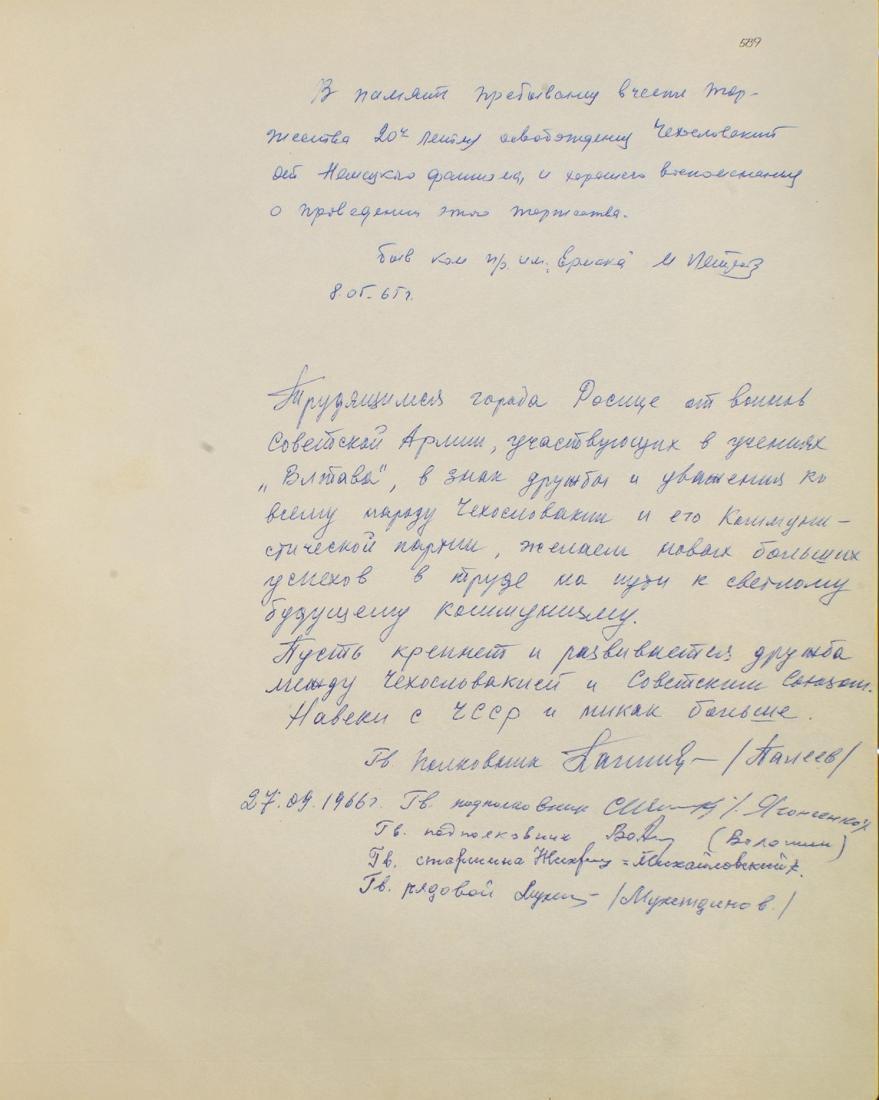 589
В память пребывания в честь тор-
жества 20ти летия освобождения Чехословакии
от Немецкого фашизма, и хорошего воспоминания
о проведении этого торжества.
быв ком пр. им. М
8.05.65г.
Трудящимся города Росице от воинов
Советской Армии, участвующих в учениях
„Влтава", в знак дружбы и уважения ко
всему народу Чехословакии и его Коммуни-
стической партии, желаем новых больших
успехов в труде на пути к светлому
будущему коммунизму.
Пусть крепнет и развивается дружба
между Чехословакией и Советским Союзом.
Навеки с ЧССР и никак больше.
Гв. полковник /Палеев/
27.09.1966г. Гв. подполковник
Гв. подполковник (Волошин)
Гв. старшина = Михайловский
Гв. рядовой /Мухетдинов./